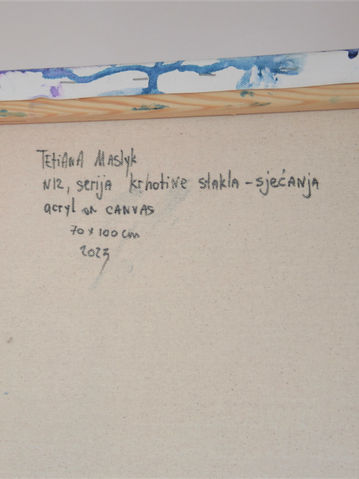 TETIANA Maslyk
N12, serija krhotine stakla - sjećanja
acryl on CANVAS
70 x 100 cm
2023